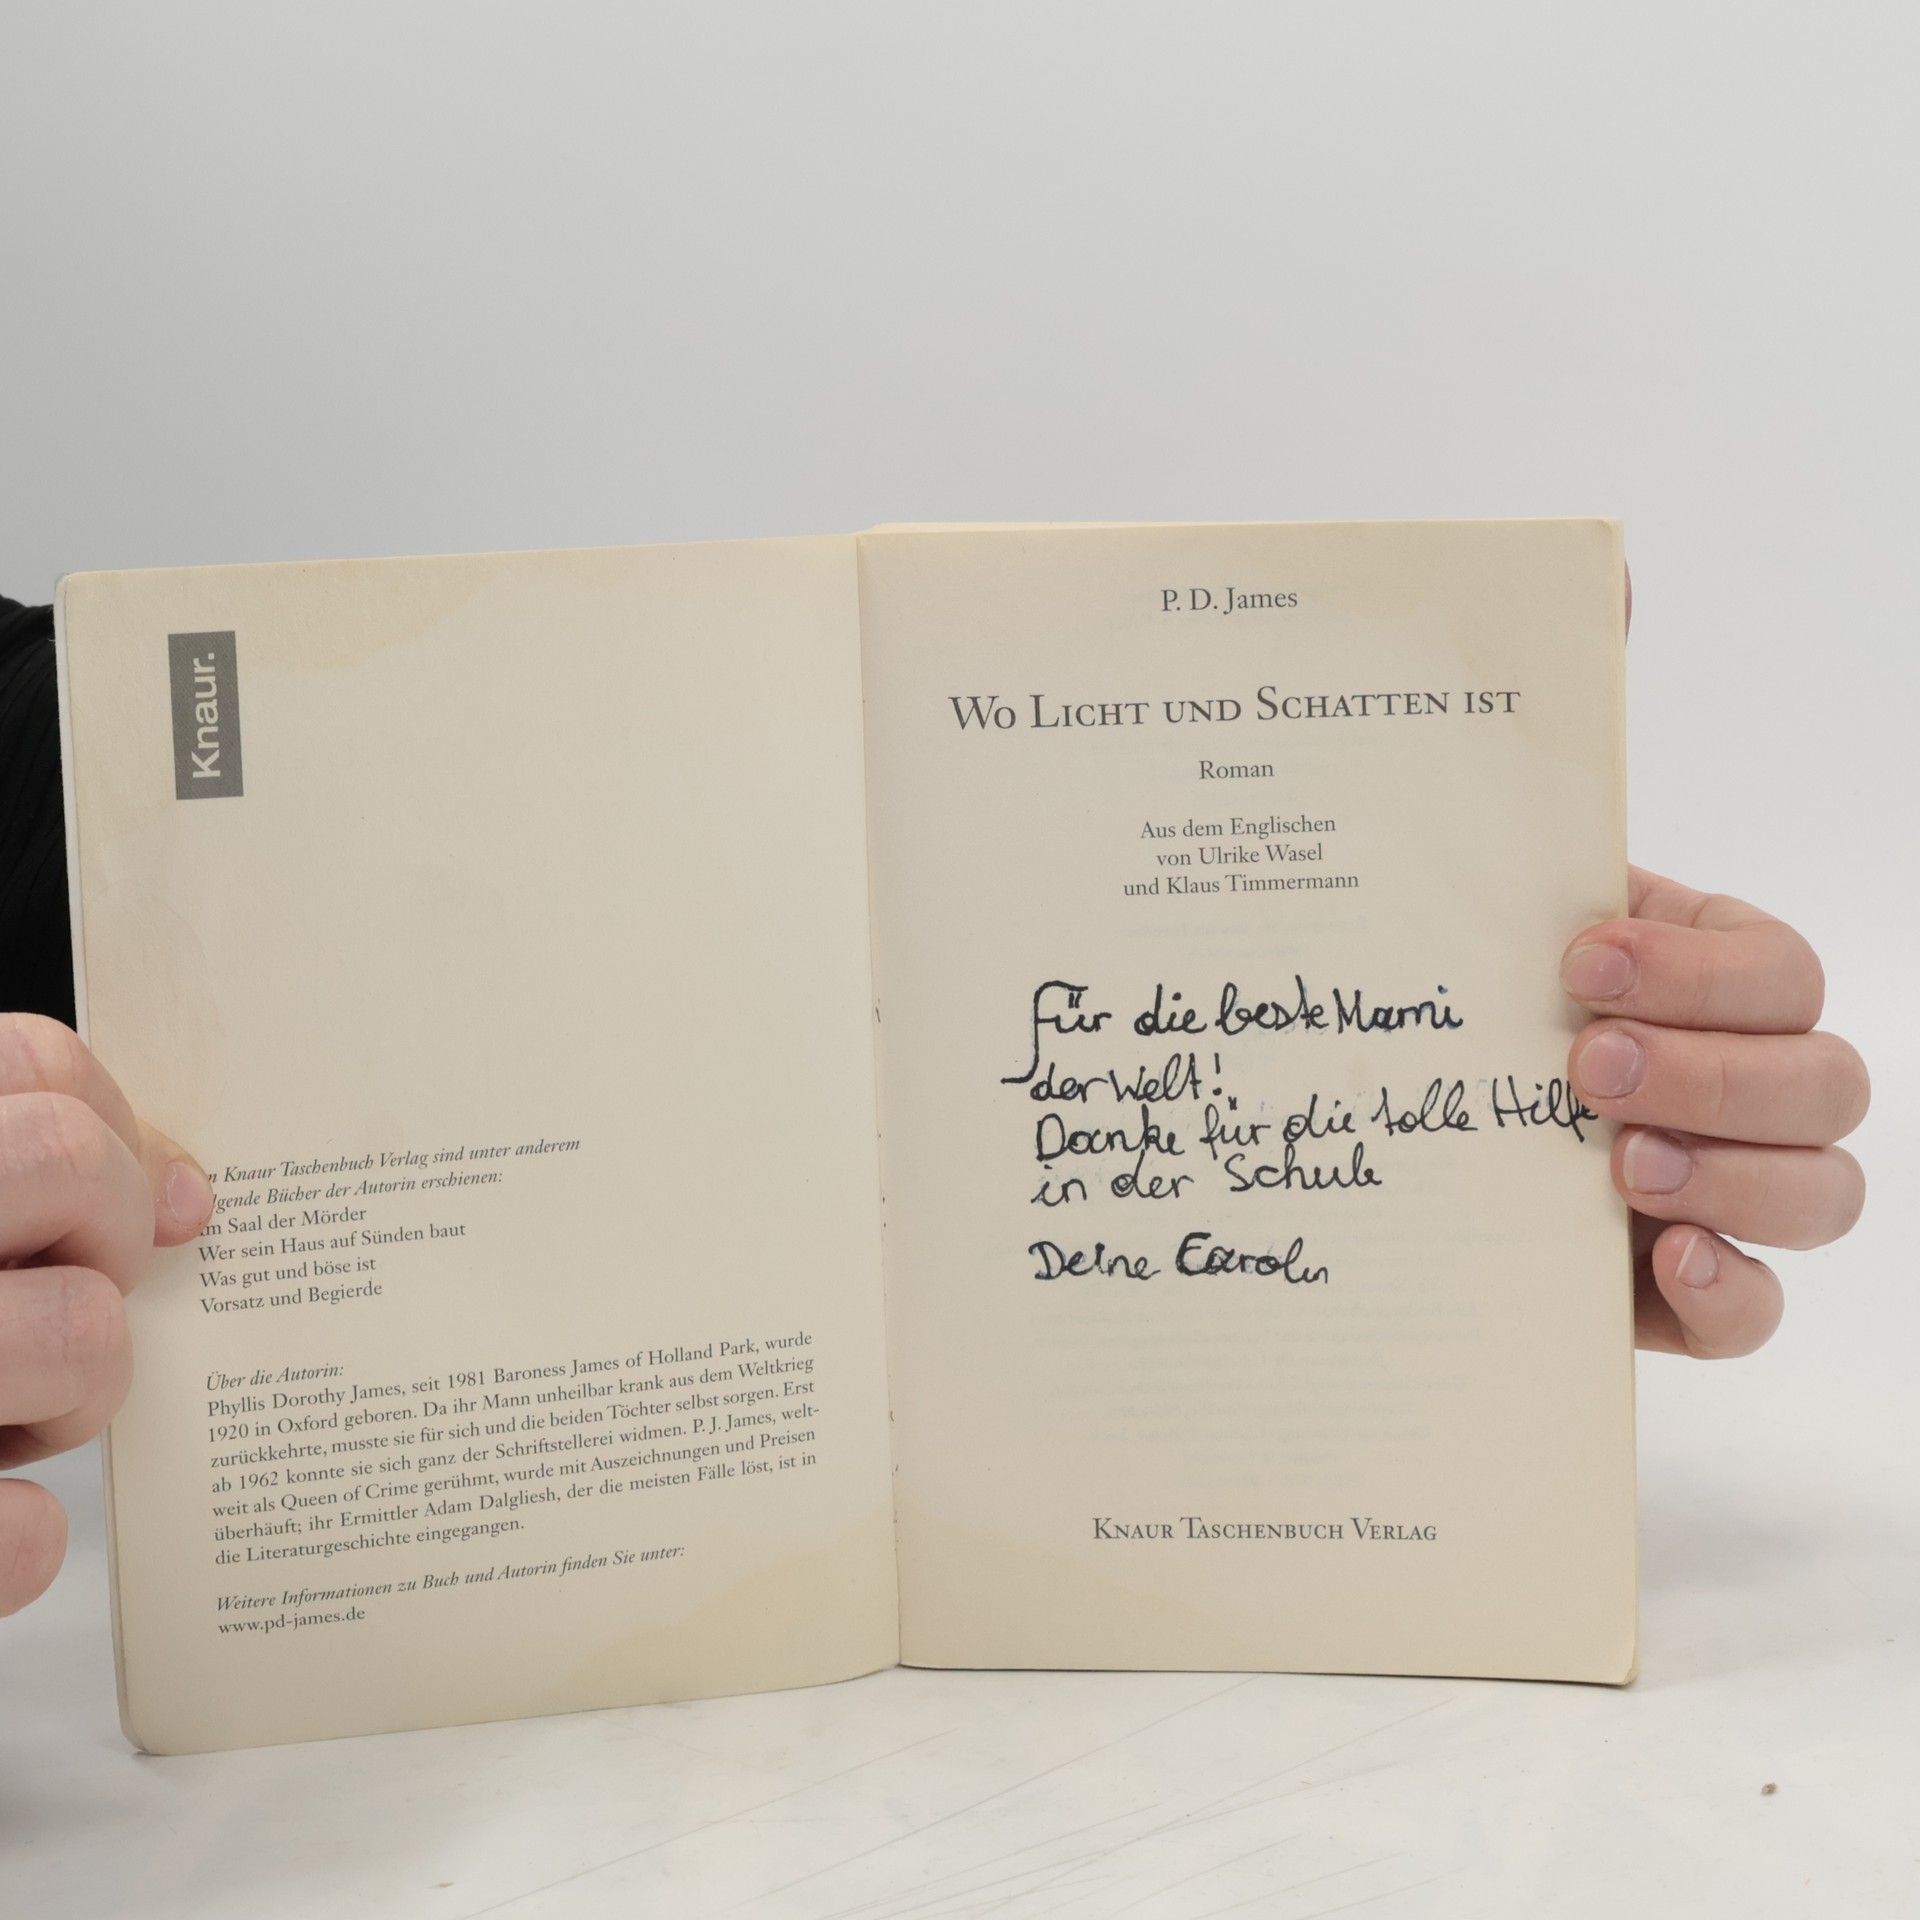 Knaur.
n Knaur Taschenbuch Verlag sind unter anderem
lgende Bücher der Autorin erschienen:
Im Saal der Mörder
Wer sein Haus auf Sünden baut
Was gut und böse ist
Vorsatz und Begierde
Über die Autorin:
Phyllis Dorothy James, seit 1981 Baroness James of Holland Park, wurde
1920 in Oxford geboren. Da ihr Mann unheilbar krank aus dem Weltkrieg
zurückkehrte, musste sie für sich und die beiden Töchter selbst sorgen. Erst
ab 1962 konnte sie sich ganz der Schriftstellerei widmen. P. J. James, welt-
weit als Queen of Crime gerühmt, wurde mit Auszeichnungen und Preisen
überhäuft; ihr Ermittler Adam Dalgliesh, der die meisten Fälle löst, ist in
die Literaturgeschichte eingegangen.
Weitere Informationen zu Buch und Autorin finden Sie unter:
www.pd-james.de
P. D. James
Wo Licht und Schatten ist
Roman
Aus dem Englischen
von Ulrike Wasel
und Klaus Timmermann
Für die beste Mami
der Welt!
Danke für die tolle Hilfe
in der Schule
Deine Carolin
Knaur Taschenbuch Verlag